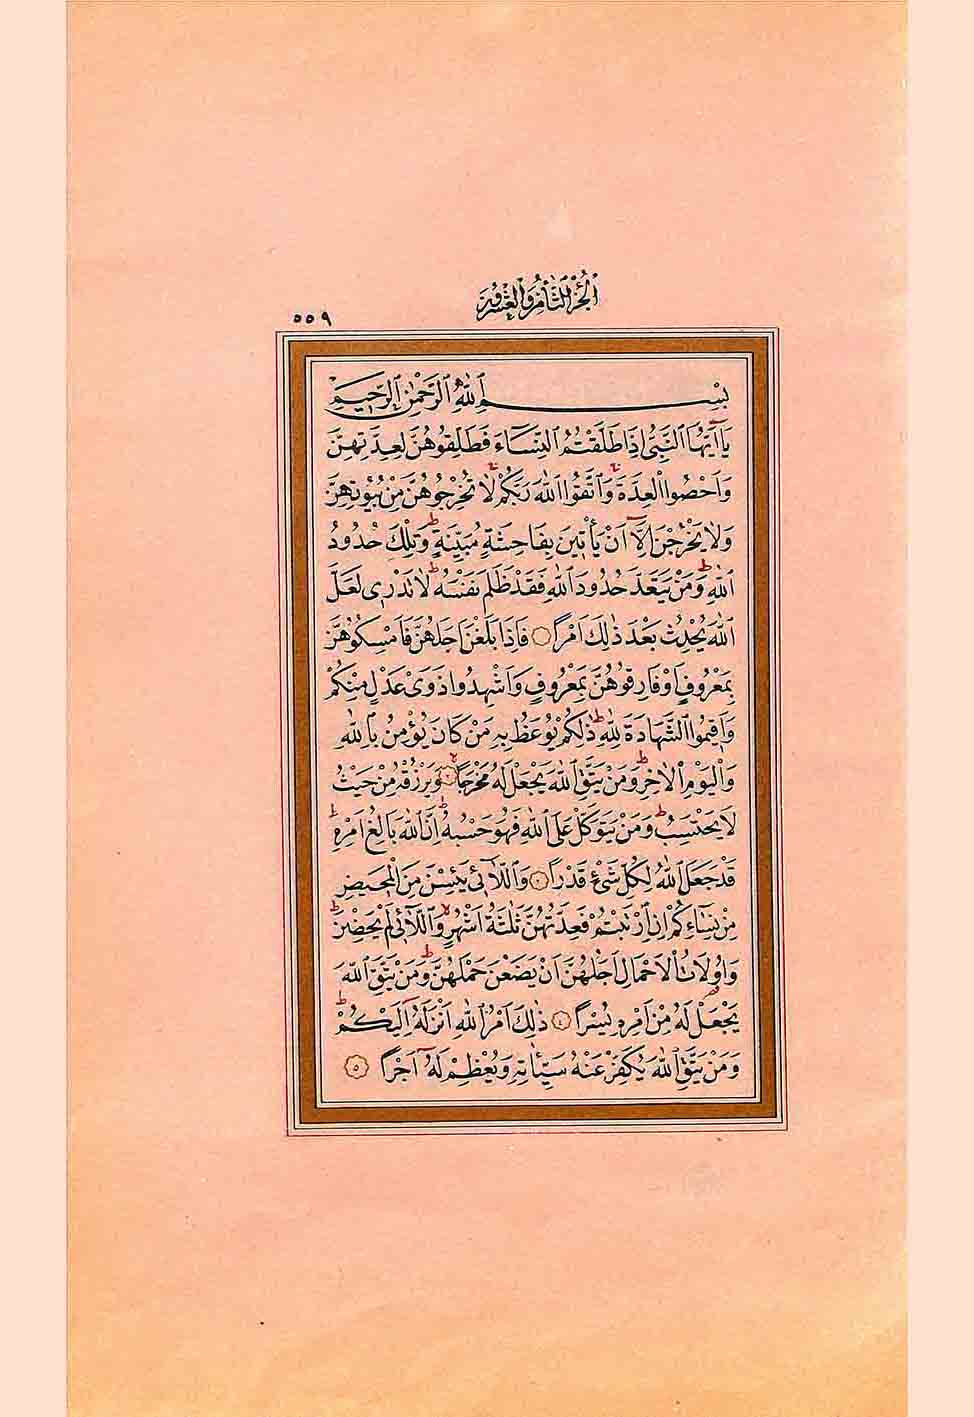 الجزء الثامن والعشرون
٥٥٩
بِسْمِ اللّٰهِ الرَّحْمٰنِ الرَّحِيمِ
يَٓا اَيُّهَا النَّبِيُّ اِذَا طَلَّقْتُمُ النِّسَٓاءَ فَطَلِّقُوهُنَّ لِعِدَّتِهِنَّ
وَاَحْصُوا الْعِدَّةَ وَاتَّقُوا اللّٰهَ رَبَّكُمْ لَا تُخْرِجُوهُنَّ مِنْ بُيُوتِهِنَّ
وَلَا يَخْرُجْنَ اِلَّٓا اَنْ يَأْتِينَ بِفَاحِشَةٍ مُبَيِّنَةٍ وَتِلْكَ حُدُودُ
اللّٰهِ وَمَنْ يَتَعَدَّ حُدُودَ اللّٰهِ فَقَدْ ظَلَمَ نَفْسَهُ لَا تَدْرِي لَعَلَّ
اللّٰهَ يُحْدِثُ بَعْدَ ذٰلِكَ اَمْرًا ۝ فَاِذَا بَلَغْنَ اَجَلَهُنَّ فَاَمْسِكُوهُنَّ
بِمَعْرُوفٍ اَوْ فَارِقُوهُنَّ بِمَعْرُوفٍ وَاَشْهِدُوا ذَوَيْ عَدْلٍ مِنْكُمْ
وَاَقِيمُوا الشَّهَادَةَ لِلّٰهِ ذٰلِكُمْ يُوعَظُ بِهِ مَنْ كَانَ يُؤْمِنُ بِاللّٰهِ
وَالْيَوْمِ الْاٰخِرِ وَمَنْ يَتَّقِ اللّٰهَ يَجْعَلْ لَهُ مَخْرَجًا ٢ وَيَرْزُقْهُ مِنْ حَيْثُ
لَا يَحْتَسِبُ وَمَنْ يَتَوَكَّلْ عَلَى اللّٰهِ فَهُوَ حَسْبُهُ اِنَّ اللّٰهَ بَالِغُ اَمْرِهِ
قَدْ جَعَلَ اللّٰهُ لِكُلِّ شَيْءٍ قَدْرًا ٣ وَالّٰٓئِي يَئِسْنَ مِنَ الْمَحِيضِ
مِنْ نِسَٓائِكُمْ اِنِ ارْتَبْتُمْ فَعِدَّتُهُنَّ ثَلٰثَةُ اَشْهُرٍ وَالّٰٓئِي لَمْ يَحِضْنَ
وَاُولَاتُ الْاَحْمَالِ اَجَلُهُنَّ اَنْ يَضَعْنَ حَمْلَهُنَّ وَمَنْ يَتَّقِ اللّٰهَ
يَجْعَلْ لَهُ مِنْ اَمْرِهِ يُسْرًا ٤ ذٰلِكَ اَمْرُ اللّٰهِ اَنْزَلَهُٓ اِلَيْكُمْ
وَمَنْ يَتَّقِ اللّٰهَ يُكَفِّرْ عَنْهُ سَيِّاٰتِهِ وَيُعْظِمْ لَهُٓ اَجْرًا ٥